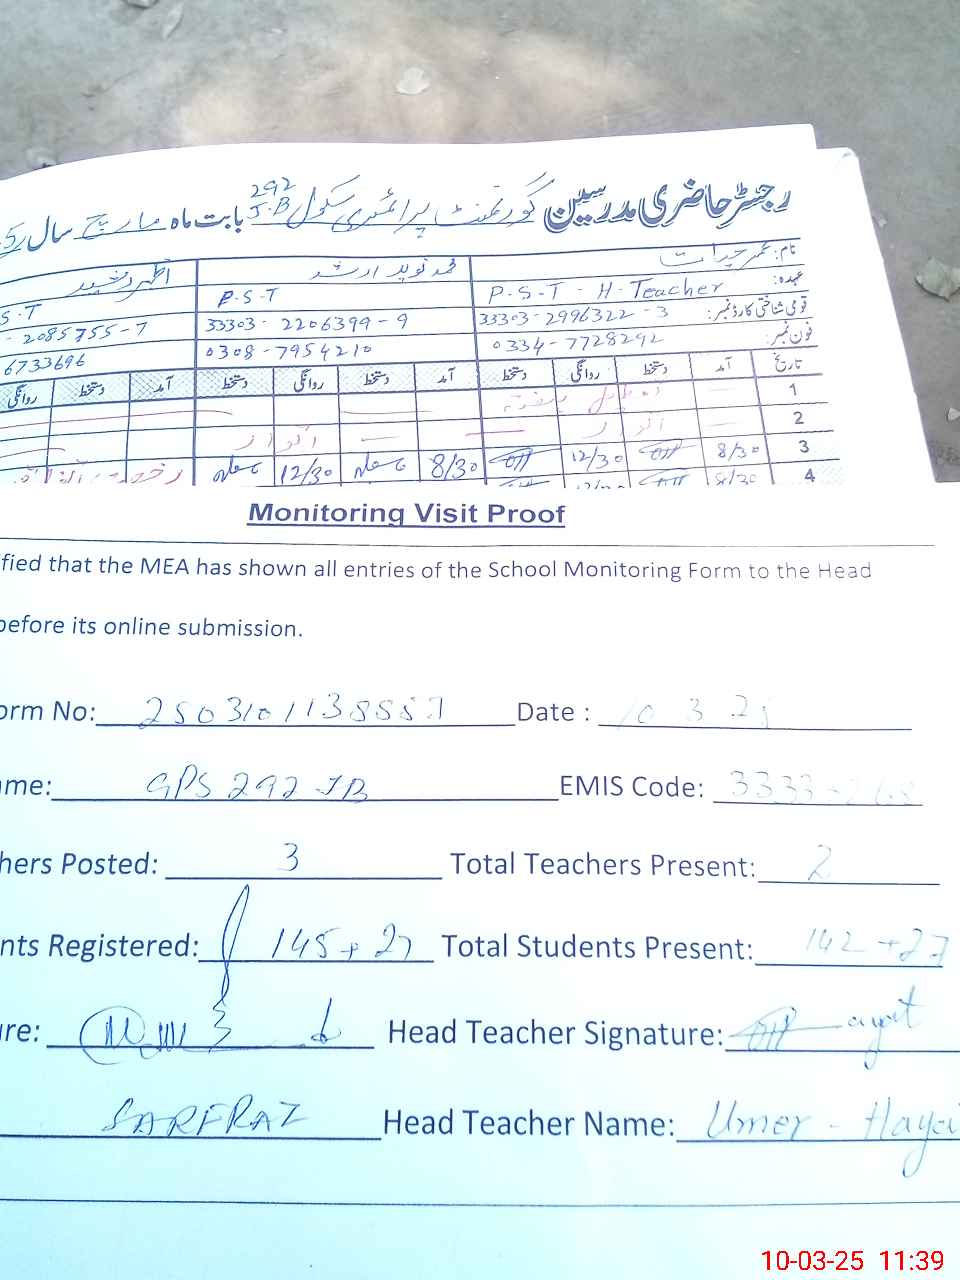 رجسٹر حاضری مدرسین گورنمنٹ پرائمری سکول 292 J.B بابت ماہ مارچ سال
نام: عمر حیات محمد نوید ارشد اظہر رشید
عہدہ: P.S.T - H-Teacher P.S.T S.T
قومی شناختی کارڈ نمبر: 33303-2996322-3 33303-2206399-9 - 2085755-7
فون نمبر: 0334-7728292 0308-7954210 6733696
تاریخ آمد دستخط روانگی دستخط آمد دستخط روانگی دستخط آمد دستخط روانگی
1
2 اتوار اتوار
3 8/30 12/30 8/30 12/30
4 8/30
Monitoring Visit Proof
fied that the MEA has shown all entries of the School Monitoring Form to the Head
before its online submission.
orm No: Date : 10 3 25
ame: GPS 292 JB EMIS Code:
hers Posted: 3 Total Teachers Present: 2
nts Registered: 145+27 Total Students Present: 142+27
re: Head Teacher Signature:
SARFRAZ Head Teacher Name: Umer - Haya
10-03-25 11:39